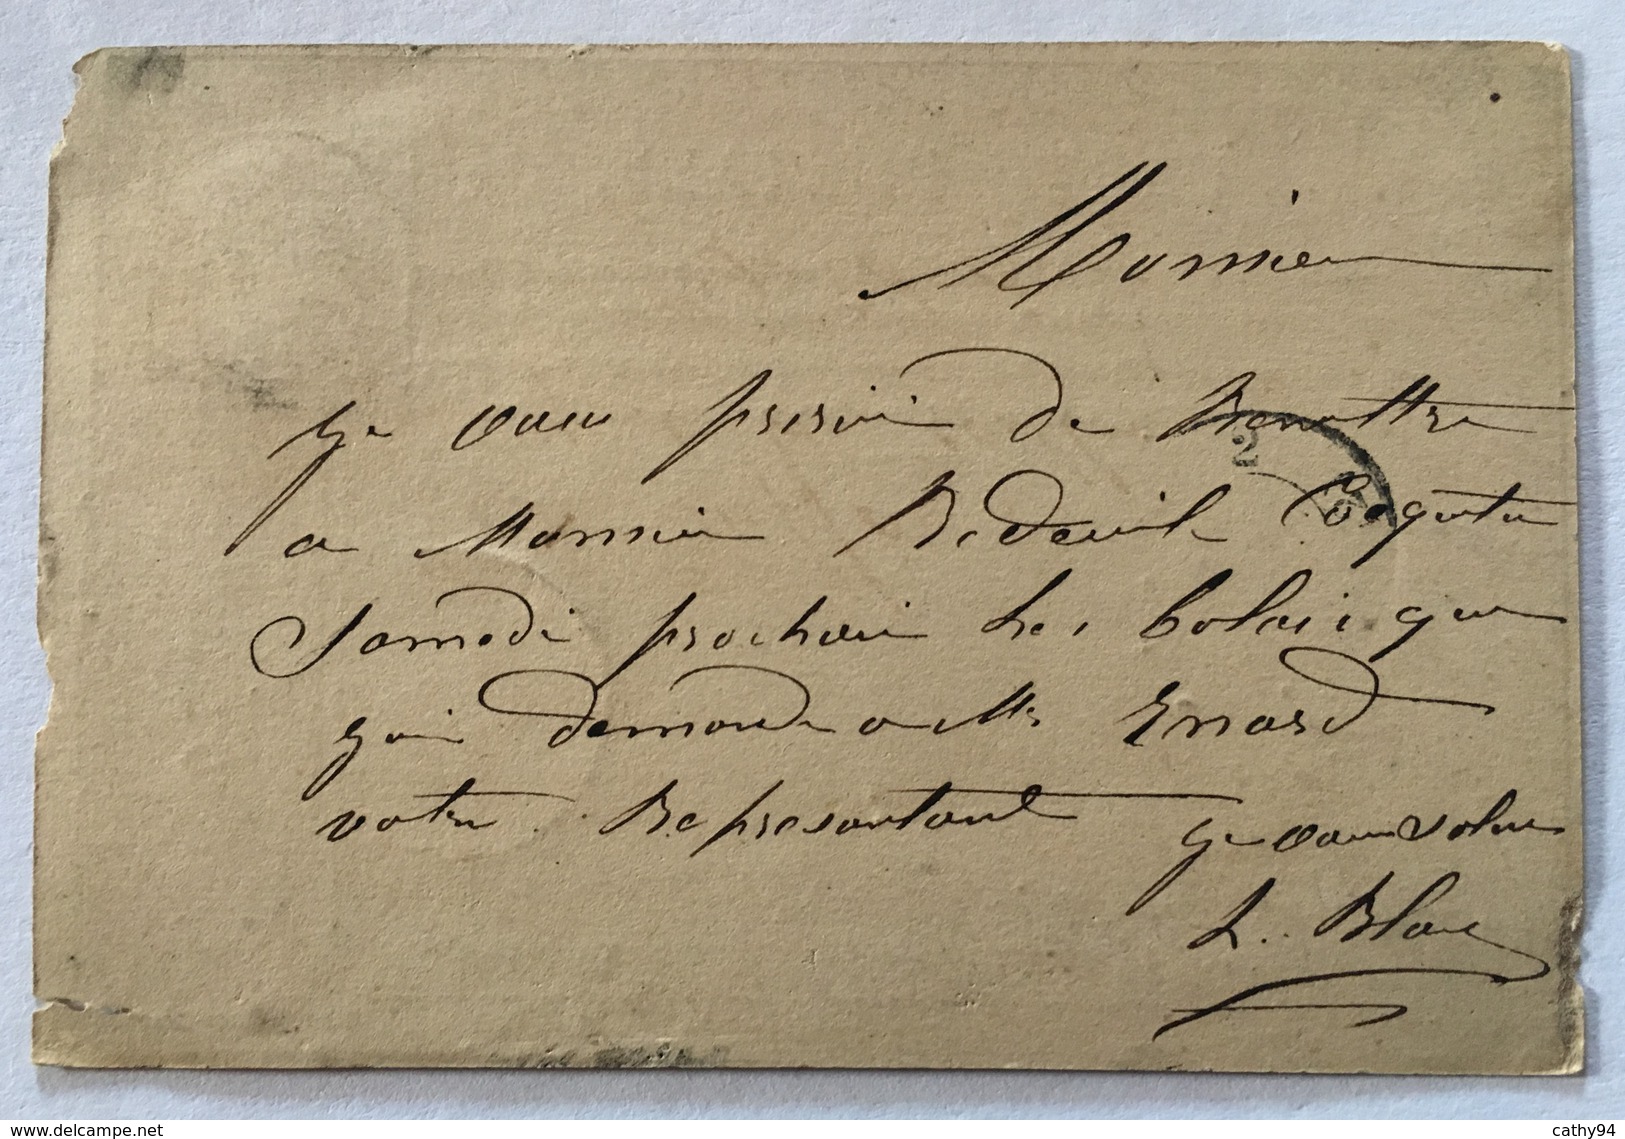 Monsieur
Je vous prirai de Remettre
a Monsieur Bedeuil
Samedi prochain Les balais que
j'ai demande a Mr Erard
votre Representant Je vous salue
L. Blanc
2
www.delcampe.net
cathy94